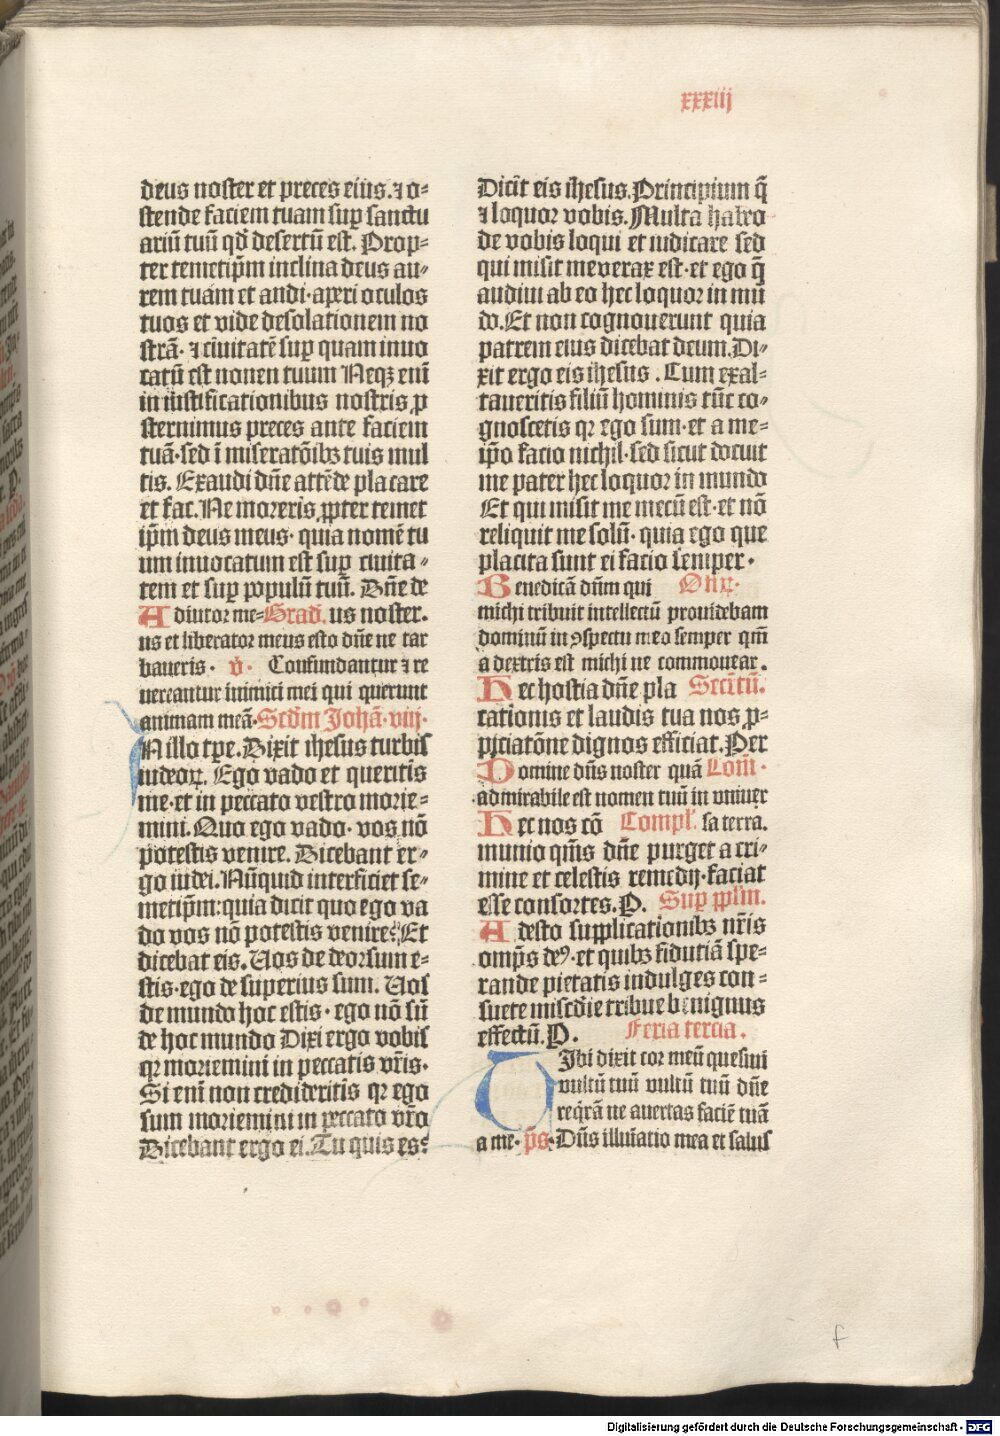 xxxiij
deus noster et preces eius. ⁊ o⸗
stende faciem tuam suꝑ sanctu
ariū tuū qd̄ desertū est. Prop⸗
ter temetip̄m inclina deus au⸗
rem tuam et audi·aperi oculos
tuos et vide desolationem no
strā· ⁊ ciuitatē suꝑ quam inuo
catū est nomen tuum Neqꝫ enī
in iustificationibus nostris ꝓ
sternimus preces ante faciem
tuā·sed ī miseratōibꝫ tuis mul
tis. Exaudi dn̄e attēde placare
et fac. Ne moreris ꝓpter temet
ip̄m deus meus· quia nomē tu
um inuocatum est suꝑ ciuita⸗
tem et suꝑ populū tuū. Dn̄e de
Adiutor me⸗ Grad̄. us noster.
us et liberator meus esto dn̄e ne tar
daueris· v̄· Confundantur ⁊ re
uereantur inimici mei qui querunt
animam meā· Scd̄m Johā·viij·
In illo tp̄e. Dixit ihesus turbis
iudeoꝝ. Ego vado et queritis
me·et in peccato vestro morie⸗
mini. Quo ego vado· vos nō
potestis venire. Dicebant er⸗
go iudei. Nūquid interficiet se⸗
metip̄m:quia dicit quo ego va
do vos nō potestis venire? Et
dicebat eis. Vos de deorsum e⸗
stis·ego de superius sum. Vos
de mundo hoc estis· ego nō sū
de hoc mundo Dixi ergo vobis
qꝛ moriemini in peccatis vr̄is.
Si enī non credideritis qꝛ ego
sum moriemini in peccato vr̄o
Dicebant ergo ei. Tu quis es?
Dicit eis ihesus. Principium q̄
⁊ loquor vobis. Multa habeo
de vobis loqui et iudicare sed
qui misit me verax est·et ego q̄
audiui ab eo hec loquor in mū
do. Et non cognouerunt quia
patrem eius dicebat deum. Di⸗
xit ergo eis ihesus. Cum exal⸗
taueritis filiū hominis tūc co⸗
gnoscetis qꝛ ego sum·et a me⸗
ip̄o facio nichil·sed sicut docuit
me pater hec loquor in mundo
Et qui misit me mecū est·et nō
reliquit me solū· quia ego que
placita sunt ei facio semper·
Benedicā dn̄m qui Offr̄·
michi tribuit intellectū prouidebam
dominū in ꝯspectu meo semper qm̄
a dextris est michi ne commouear.
Hec hostia dn̄e pla Secr̄tū.
cationis et laudis tua nos ꝓ⸗
piciatōne dignos efficiat. Per
Domine dn̄s noster quā Com̄·
admirabile est nomen tuū in vniuer
Hec nos cō Compl̄. sa terra.
munio qm̄s dn̄e purget a cri⸗
mine et celestis remedij·faciat
esse consortes. P. Suꝑ ppl̄m.
Adesto supplicationibꝫ nr̄is
omp̄s deꝰ·et quibꝫ fiduciā spe⸗
rande pietatis indulges con⸗
suete misc̄die tribue benignus
effectū. P. Feria tercia.
Tibi dixit cor meū quesiui
vultū tuū vultū tuū dn̄e
reqrā ne auertas faciē tuā
a me· ps̄· Dn̄s illuīatio mea et salus
f
Digitalisierung gefördert durch die Deutsche Forschungsgemeinschaft · DFG